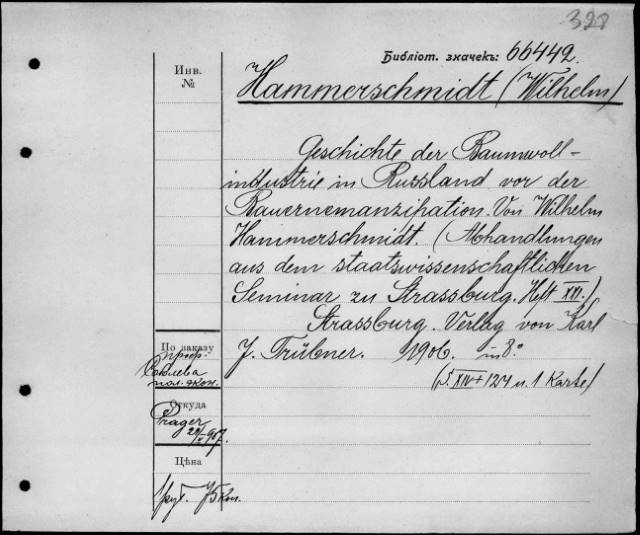 328
Библіот. значекъ: 66442.
Инв.
№
Hammerschmidt (Wilhelm)
Geschichte der Baumwoll-
industrie in Russland vor der
Bauernemanzipation. Von Wilhelm
Hammerschmidt. (Abhandlungen
aus dem staatswissenschaftlichen
Seminar zu Strassburg. Heft XXI.)
Strassburg. Verlag von Karl
J. Trübner. 1906. in 8°.
(S. XIV + 124 u. 1 Karte)
По заказу
проф.
Соболева
пол. экон.
Откуда
Prager
907.
Цѣна
1 руб. 75 коп.